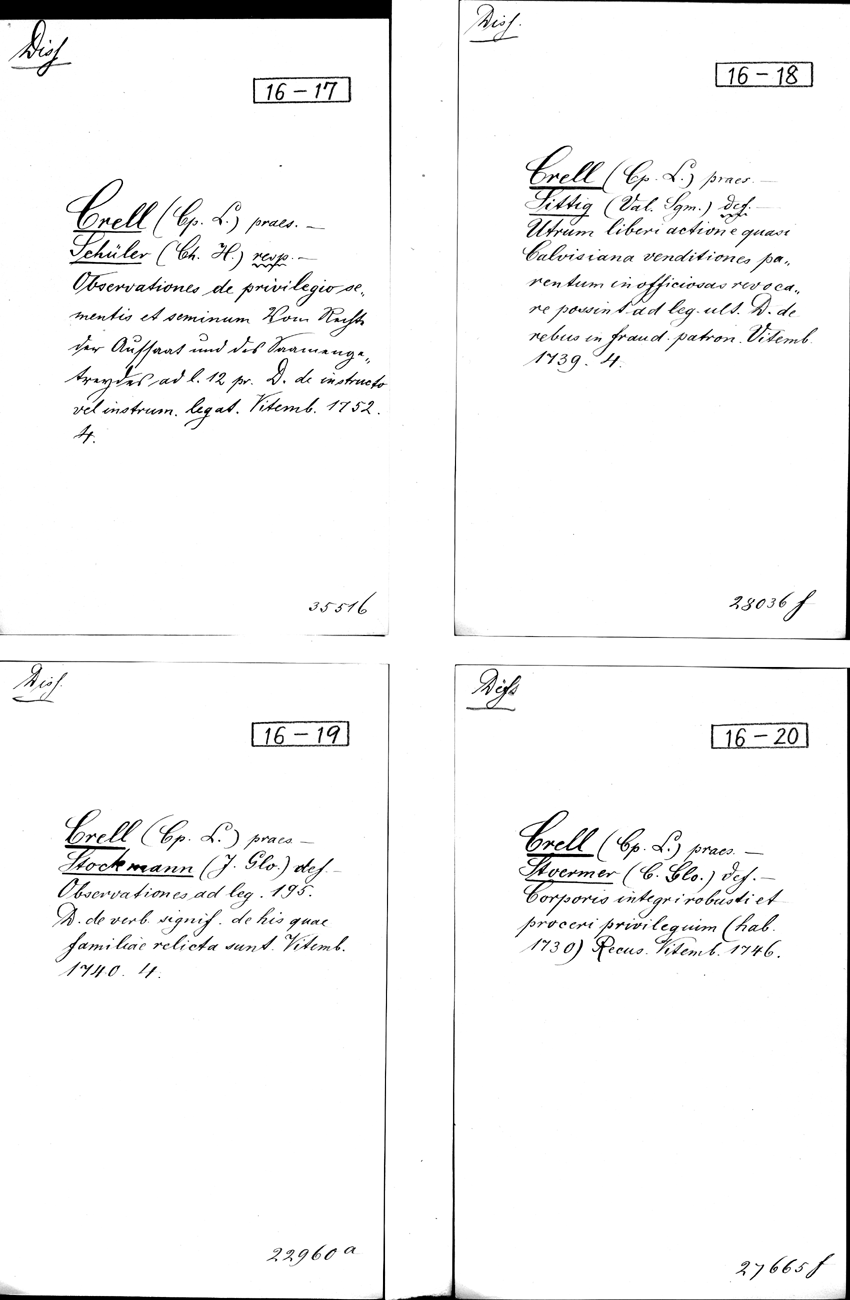 Diss
16 – 17
Crell (Cp. L.) praes. —
Schüler (Ch. H.) resp. —
Observationes de privilegio se„
mentis et seminum Vom Recht
der Aussaat und des Saamenge„
treydes ad l. 12 pr. D. de instructo
vel instrum. legat. Vitemb. 1752.
4.
35516
Diss.
16 – 18
Crell (Cp. L.) praes. —
Sittig (Val. Sgm.) def. —
Utrum liberi actione quasi
Calvisiana venditiones pa„
rentum in officiosas revoca„
re possint ad leg. ult. D. de
rebus in fraud. patron. Vitemb.
1739. 4.
28036 f
Diss.
16 – 19
Crell (Cp. L.) praes —
Stockmann (J. Glo.) def —
Observationes ad leg. 195.
D. de verb. signif. de his quae
familiae relicta sunt. Vitemb.
1740. 4.
22960 a
Diss
16 – 20
Crell (Cp. L.) praes —
Stoermer (C. Glo.) def. —
Corporis integri robusti et
proceri privilegium (hab.
1730) Recus. Vitemb. 1746.
27665 f